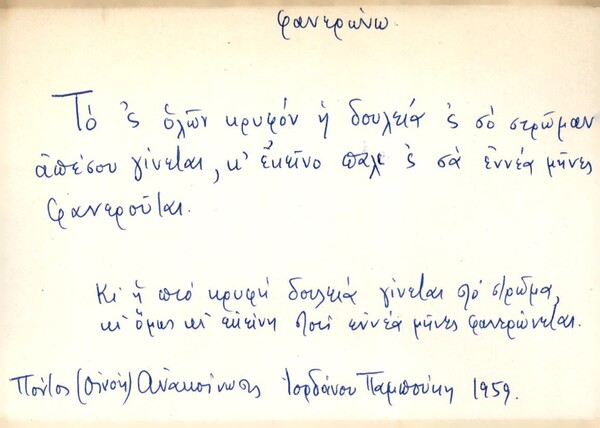 φανερώνω
Τό 'ς ὅλων κρυφόν ἡ δουλεία 'ς σό στρῶμαν
ἀπέσου γίνεται, κ' ἐκεῖνο πάλ' 'ς σά ἐννέα μῆνες
φανεροῦται.
Κι ἡ πιό κρυφή δουλειά γίνεται στό στρῶμα,
κι ὅμως κι ἐκείνη στούς ἐννέα μῆνες φανερώνεται.
Πόντος (Οἰνόη) Ἀνακοίνωσις Ἰορδάνου Παμπούκη 1959.